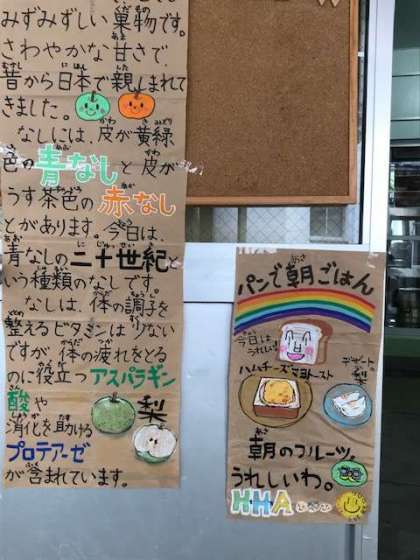 みずみずしい果物です。
さわやかな甘さで、
昔から日本で親しまれて
きました。
なしには、皮が黄緑
色の青なしと皮が
うす茶色の赤なし
とがあります。今日は、
青なしの二十世紀と
いう種類のなしです。
なしは、体の調子を
整えるビタミンは少ない
ですが、体の疲れをとる
のに役立つアスパラギン
酸や
消化を助ける
プロテアーゼ
が含まれています。
梨
パンで朝ごはん
今日は
うれしい
ハムチーズ
トースト
デザート
梨
朝のフルーツ。
うれしいわ。
HHA